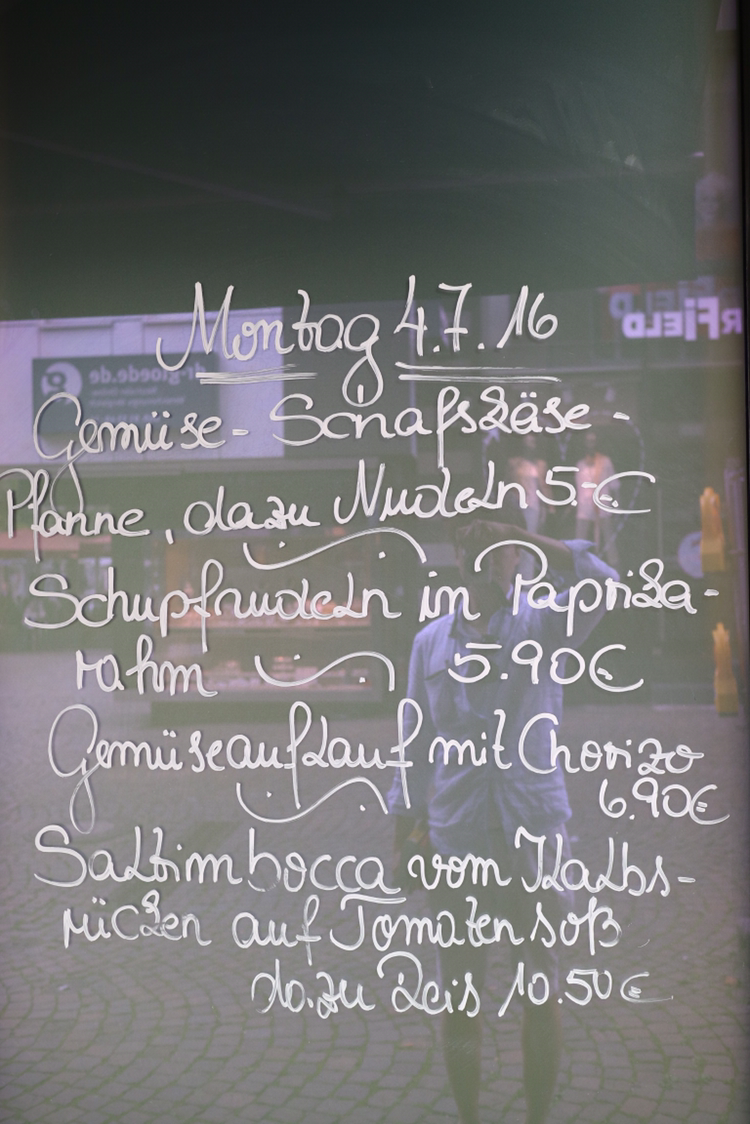 Montag 4.7.16
Gemüse-Schafskäse-
Pfanne, dazu Nudeln 5.-€
Schupfnudeln in Paprika-
rahm 5.90€
Gemüseauflauf mit Chorizo
6.90€
Saltimbocca vom Kalbs-
rücken auf Tomatensoß
dazu Reis 10.50€
dr-gloede.de
RFIELD